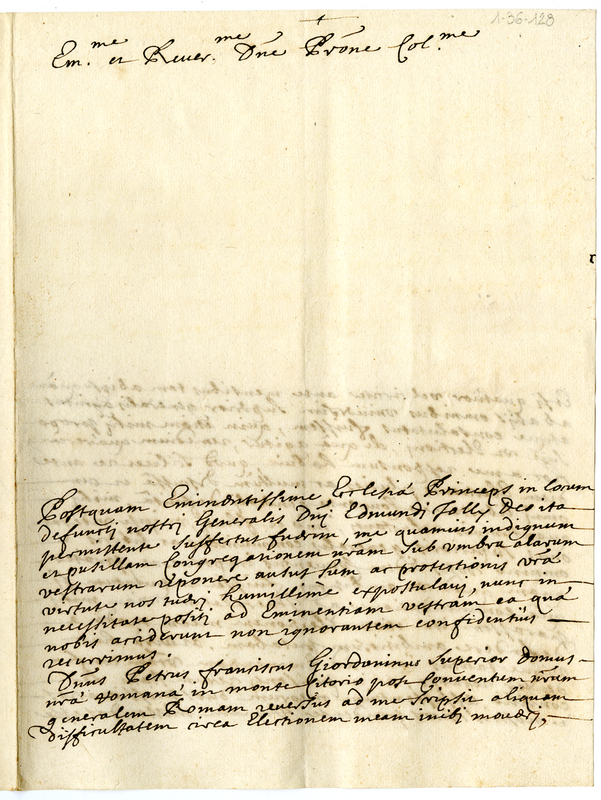 1-36-128
Em.me et Reuer.me Dne Prōne Col.me
Postquam Eminentissime Ecclesiæ Princeps in locum
defuncti nostri Generalis Dnj Edmundi Jolly Deo ita
permittente suffectus fuerim, me quamuis indignum
et pusillam Congregationem nram sub vmbra alarum
vestrarum reponere ausus sum ac protectionis vrā
virtute nos tuerj humillime expostulauj, nunc in
necessitate positj ad Eminentiam vestram ea quæ
nobis acciderunt non ignorantem confidentiùs
recurrimus.
Dnus Petrus franciscus Giordaninus Superior domus
nræ romanæ in monte Citorio post Conuentum nrum
generalem Romam reuersus ad me scripsit aliquam
difficultatem circa Electionem meam inibj mouerj,